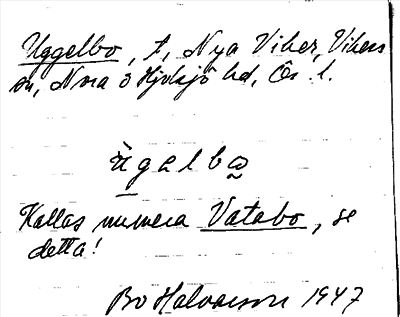 Uggelbo, t, Nya Viker, Vikers
sn, Nora o Hjulsjö hd, Ör. l.
ùgelbo̰
Kallas numera Vatabo, se
detta!
Bo Halvarson 1947